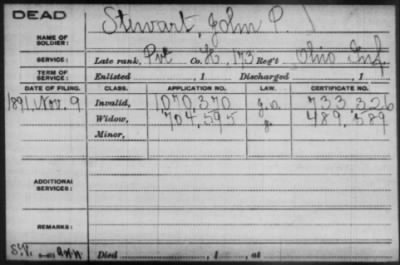 DEAD
NAME OF SOLDIER: Stewart, John P.
SERVICE: Late rank, Pvt Co. K, 173 Reg't Ohio Inf.
TERM OF SERVICE: Enlisted , 1 Discharged , 1
DATE OF FILING. CLASS. APPLICATION NO. LAW. CERTIFICATE NO.
1891, Nov. 9 Invalid, 1070,370 733,326
Widow, 704,595 489,589
Minor,
ADDITIONAL SERVICES:
REMARKS:
Died , 1 , at